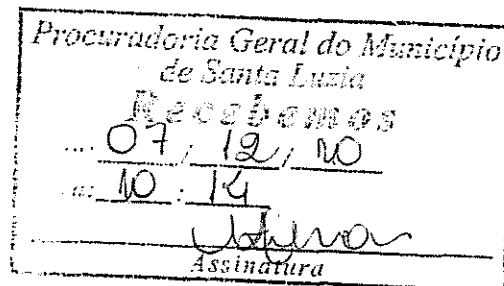 Procuradoria Geral do Município
de Santa Luzia
Recebemos
07 / 12 / 10
10 : 14
Assinatura